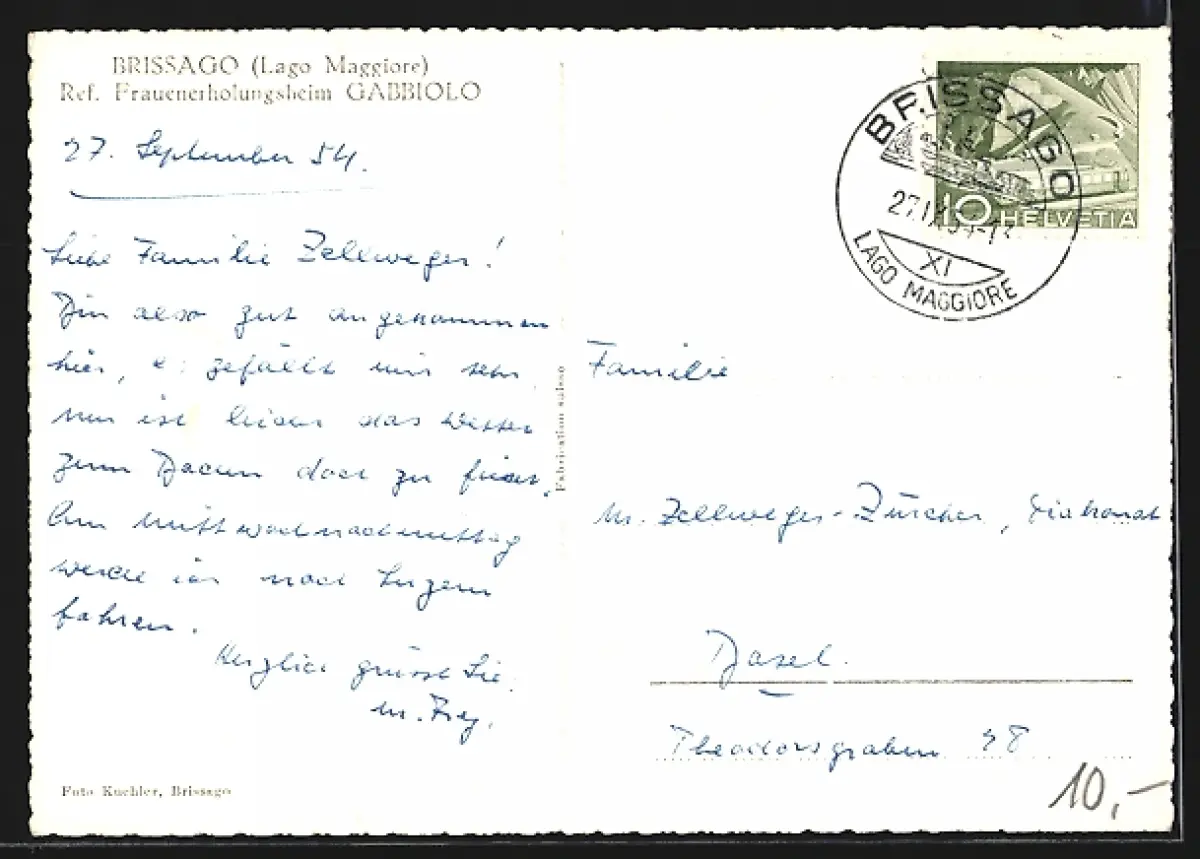 BRISSAGO (Lago Maggiore)
Ref. Frauenerholungsheim GABBIOLO
27. September 54.
Liebe Familie Zellweger!
Bin also gut angekommen
hier, & gefällt mir sehr
nur ist leider das Wetter
zum Baden doch zu
Am Mittwochnachmittag
werde ich nach Luzern
fahren.
Herzlich grüsst Sie
M. Frey.
Foto Kuehler, Brissago
Fabrication suisse
BRISSAGO
27.IX.54-17
XI
LAGO MAGGIORE
10 HELVETIA
Familie
M. Zellweger-Zürcher, Diakonat
Basel.
Theodorsgraben
10,-